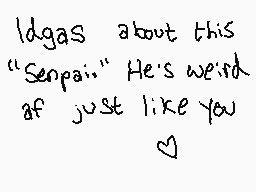 Idgas about this
"Senpai." He's weird
af just like you
♡